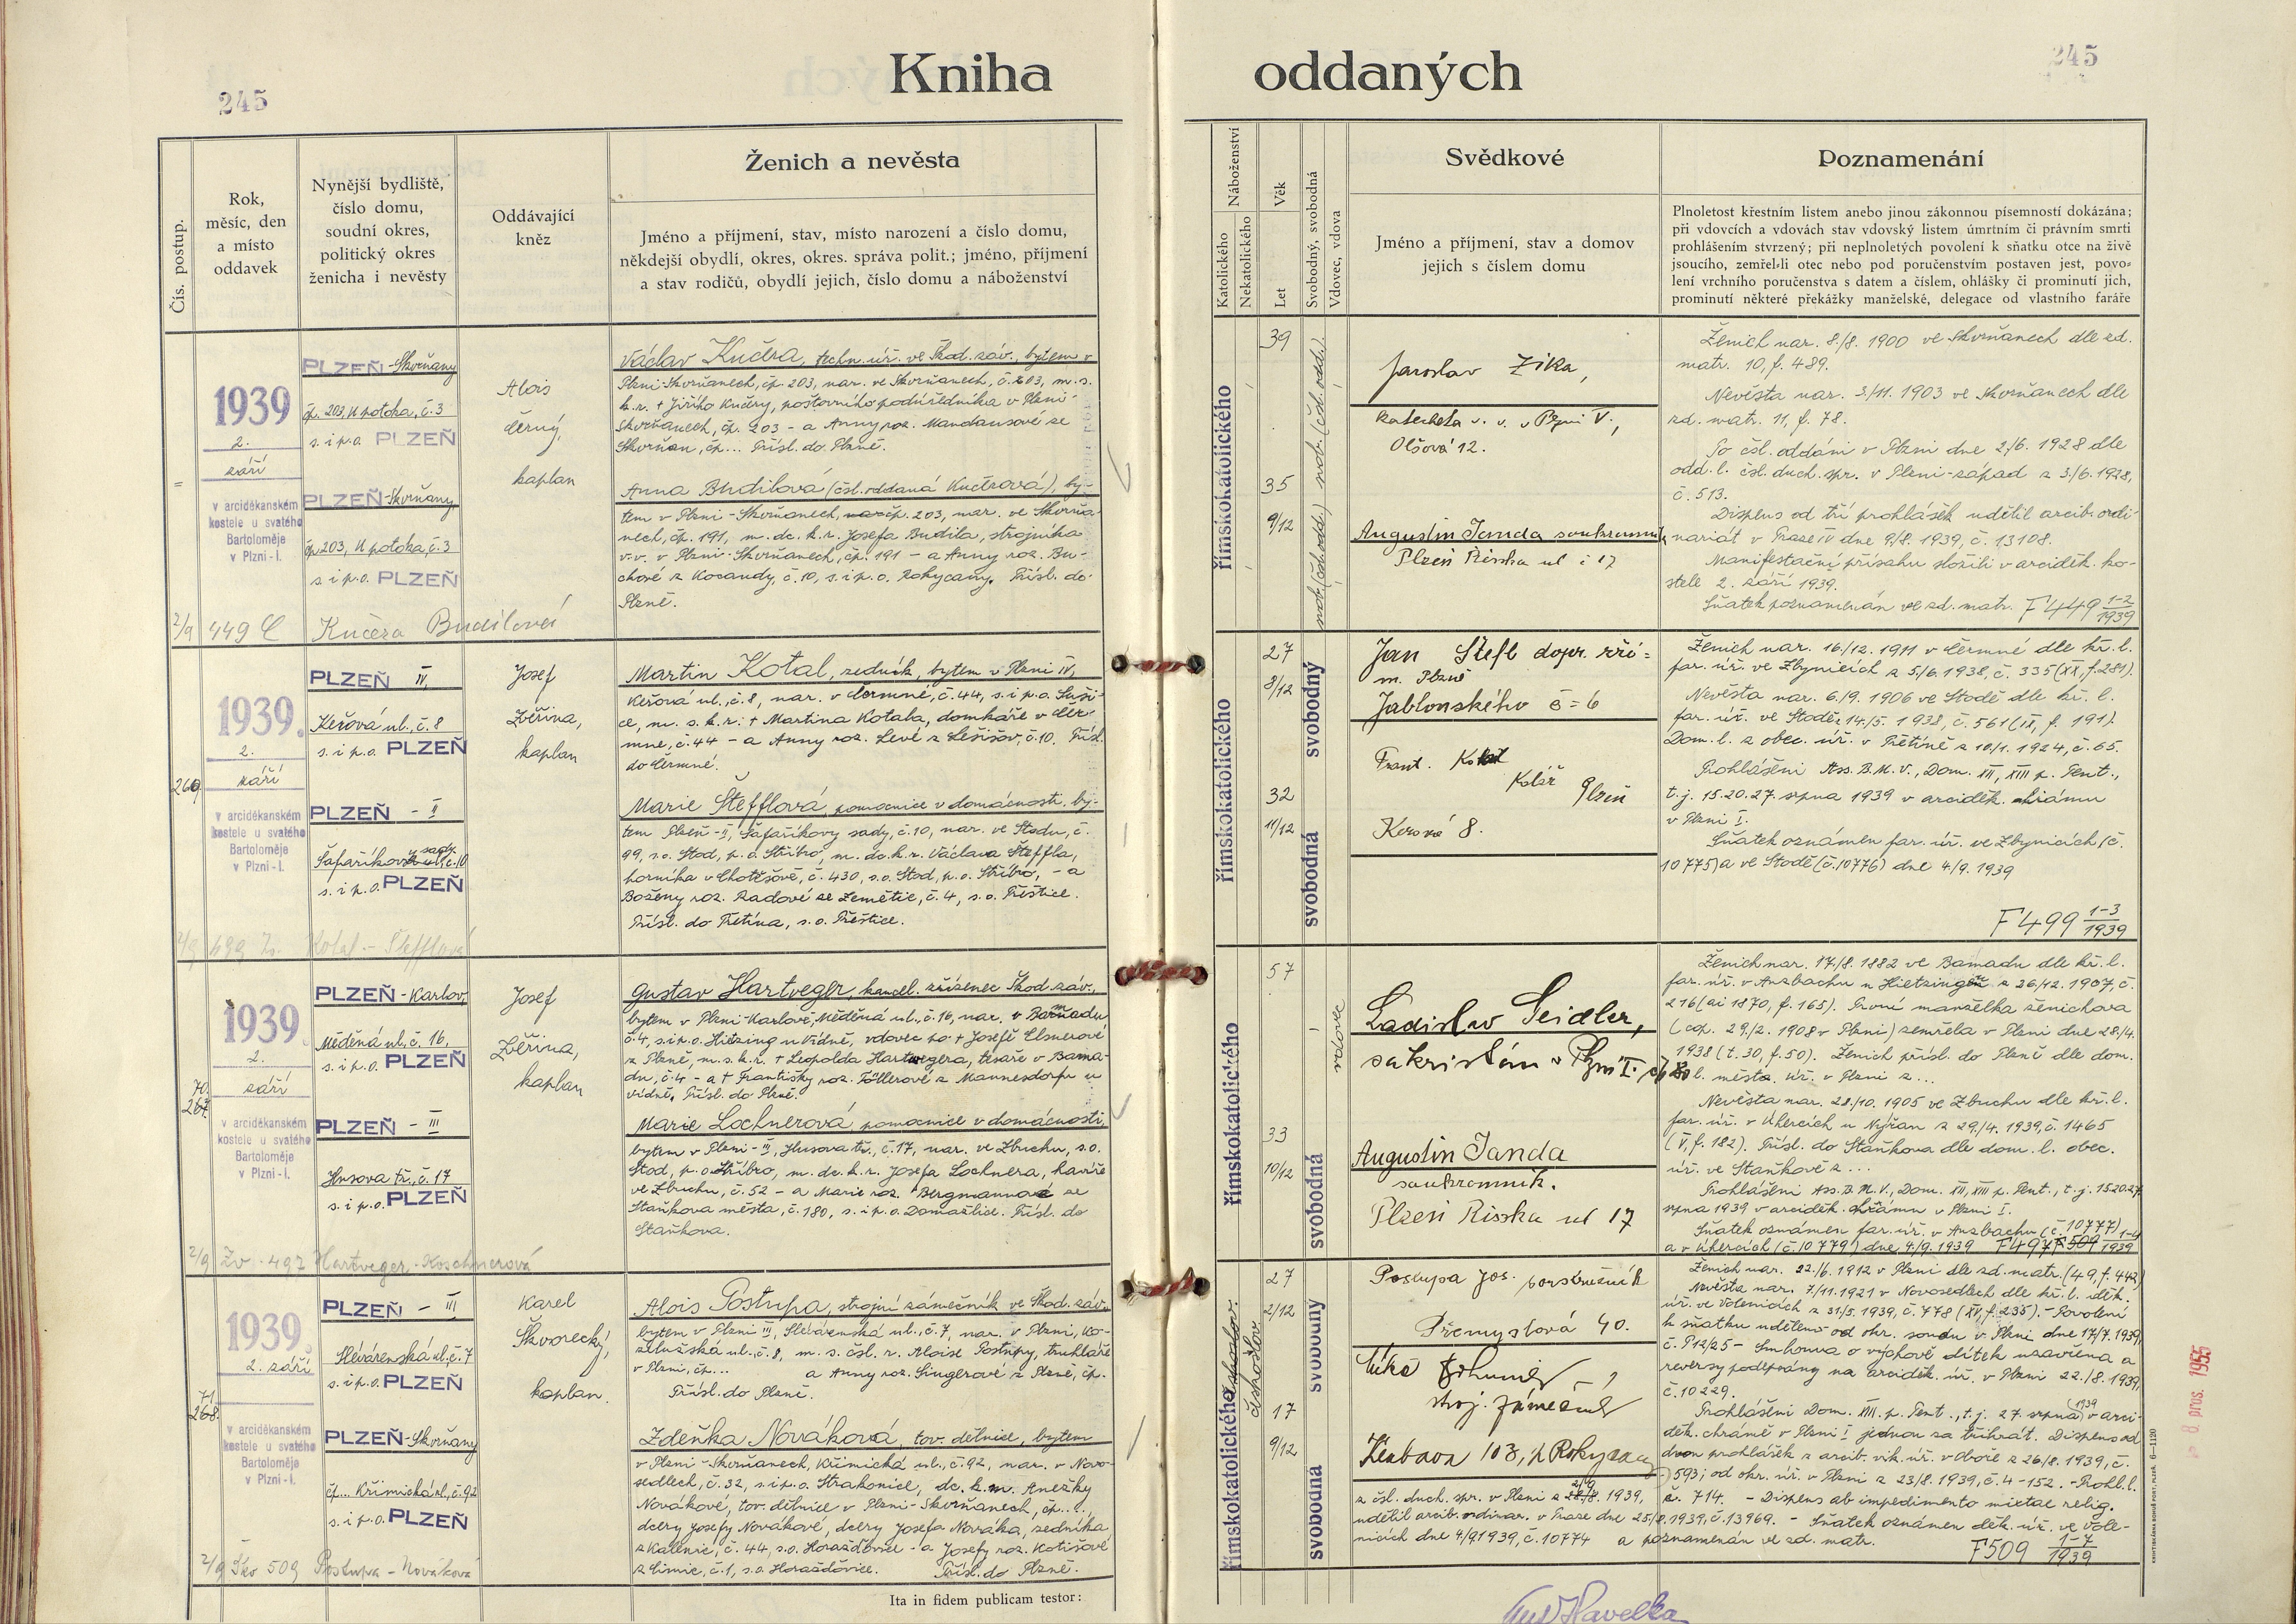 245
Kniha
oddaných
245
Čís. postup.
Rok,
měsíc, den
a místo
oddavek
Nynější bydliště,
číslo domu,
soudní okres,
politický okres
ženicha i nevěsty
Oddávající
kněz
Ženich a nevěsta
Jméno a příjmení, stav, místo narození a číslo domu,
někdejší obydlí, okres, okres. správa polit.; jméno, příjmení
a stav rodičů, obydlí jejich, číslo domu a náboženství
Náboženství
Katolického
Nekatolického
Věk
Let
Svobodný, svobodná
Vdovec, vdova
Svědkové
Jméno a příjmení, stav a domov
jejich s číslem domu
Poznamenání
Plnoletost křestním listem anebo jinou zákonnou písemností dokázána;
při vdovcích a vdovách stav vdovský listem úmrtním či právním smrti
prohlášením stvrzený; při neplnoletých povolení k sňatku otce na živě
jsoucího, zemřel-li otec nebo pod poručenstvím postaven jest, povo-
lení vrchního poručenstva s datem a číslem, ohlášky či prominutí jich,
prominutí některé překážky manželské, delegace od vlastního faráře
1939
2.
září
v arciděkanském
kostele u svatého
Bartoloměje
v Plzni - I.
PLZEŇ-Skvrňany
čp. 203, U potoka, č. 3
s. i p. o. PLZEŇ
PLZEŇ-Skvrňany
čp. 203, U potoka, č. 3
s. i p. o. PLZEŇ
Alois
Černý,
kaplan
Václav Kučera, techn. úř. ve Škod. záv., bytem v
Plzni-Skvrňanech, čp. 203, nar. ve Skvrňanech, č. 203, m. s.
k. r. + Jiřího Kučery, poštovního podúředníka v Plzni-
Skvrňanech, čp. 203 - a Anny roz. Mandausové ze
Skvrňan, čp... Přísl. do Plzně.
Anna Budilová (čsl. oddaná Kučerová), by-
tem v Plzni-Skvrňanech, čp. 203, nar. ve Skvrňa-
nech, čp. 191, m. dc. k. r. Josefa Budila, strojníka
v. v. v Plzni-Skvrňanech, čp. 191 - a Anny roz. Bu-
chové z Kocandy, č. 10, s. i p. o. Rokycany. Přísl. do
Plzně.
2/9 449 Č Kučera Budilová
římskokatolického
39
35
9/12
svob. (čsl. odd.)
svob. (čsl. odd.)
Jaroslav Zíka,
katecheta v. v. v Plzni V.,
Olšová 12.
Augustin Janda soukromník
Plzeň Řísska ul č 17
Ženich nar. 8./8. 1900 ve Skvrňanech dle zd.
matr. 10, f. 489.
Nevěsta nar. 3/11. 1903 ve Skvrňanech dle
zd. matr. 11, f. 78.
Po čsl. oddáni v Plzni dne 2/6. 1928 dle
odd. l. čsl. duch. spr. v Plzni-západ z 3/6. 1928,
č. 513.
Dispens od tří prohlášek udělil arcib. ordi-
nariát v Praze IV dne 9/8. 1939, č. 13108.
Manifestační přísahu složili v arciděk. ko-
stele 2. září 1939.
Sňatek poznamenán ve zd. matr. F 449 1-2/1939
269
1939.
2.
září
v arciděkanském
kostele u svatého
Bartoloměje
v Plzni - I.
PLZEŇ IV,
Keřová ul., č. 8
s. i p. o. PLZEŇ
PLZEŇ - II
Šafaříkovy sady, č. 10
s. i p. o. PLZEŇ
Josef
Zvěřina,
kaplan
Martin Kotal, zedník, bytem v Plzni IV,
Keřová ul., č. 8, nar. v Čermné, č. 44, s. i p. o. Suši-
ce, m. s. k. r. + Martina Kotala, domkáře v Čer-
mné, č. 44 - a Anny roz. Levé z Lešišov, č. 10. Přísl.
do Čermné.
Marie Štefflová, pomocnice v domácnosti, by-
tem Plzeň-II, Šafaříkovy sady, č. 10, nar. ve Stodu, č.
99, s. o. Stod, p. o. Stříbro, m. dc. k. r. Václava Šteffla,
horníka v Chotěšově, č. 430, s. o. Stod, p. o. Stříbro, - a
Boženy roz. Radové ze Zemětic, č. 4, s. o. Přeštice.
Přísl. do Přetína, s. o. Přeštice.
2/9 499 Zv. Kotal - Štefflová
římskokatolického
27
8/12
32
11/12
svobodný
svobodná
Jan Štefl dopr. zří-
m. Plzně
Jablonského č = 6
Frant. Kolář Plzeň
Kerová 8.
Ženich nar. 16/12. 1911 v Čermné dle kř. l.
far. úř. ve Zbynicích z 5/6. 1938, č. 335 (XI, f. 281).
Nevěsta nar. 6./9. 1906 ve Stodě dle kř. l.
far. úř. ve Stodě z 14/5. 1938, č. 561 (IX, f. 191).
Dom. l. z obec. úř. v Přetíně z 10/1. 1924, č. 65.
Prohlášeni Ass. B. M. V., Dom. XII, XIII p. Pent.,
t. j. 15. 20. 27. srpna 1939 v arciděk. chrámu
v Plzni I.
Sňatek oznámen far. úř. ve Zbynicích (č.
10775) a ve Stodě (č. 10776) dne 4/9. 1939
F 499 1-3/1939
70.
267.
1939.
2.
září
v arciděkanském
kostele u svatého
Bartoloměje
v Plzni - I.
PLZEŇ-Karlov,
Měděná ul., č. 16,
s. i p. o. PLZEŇ
PLZEŇ - III
Husova tř., č. 17
s. i p. o. PLZEŇ
Josef
Zvěřina,
kaplan
Gustav Hartweger, kancel. zřízenec Škod. záv.,
bytem v Plzni-Karlově, Měděná ul., č. 16, nar. v Bamadu
č. 4, s. i p. o. Hietzing u Vídně, vdovec po + Josefě Elsnerové
z Plzně, m. s. k. r. + Leopolda Hartwegera, tesaře v Bama-
du, č. 4 - a + Františky roz. Töllerové z Mannesdorfu u
Vídně, Přísl. do Plzně.
Marie Lochnerová, pomocnice v domácnosti,
bytem v Plzni-III, Husova tř., č. 17, nar. ve Zbuchu, s. o.
Stod, p. o. Stříbro, m. dc. k. r. Josefa Lochnera, havíře
ve Zbuchu, č. 52 - a Marie roz. Bergmannové ze
Staňkova města, č. 180, s. i p. o. Domažlice. Přísl. do
Staňkova.
2/9 Zv. 497 Hartveger - Koschnerová
římskokatolického
57
33
10/12
vdovec
svobodná
Ladislav Seidler,
sakristán v Plzni I. čp 80
Augustin Janda
soukromník.
Plzeň Řísska ul 17
Ženich nar. 17/8. 1882 ve Bamadu dle kř. l.
far. úř. v Anzbachu u Hietzingu z 26/12. 1907, č.
216 (ai 1870, f. 165). První manželka ženichova
(cop. 29/2. 1908 v Plzni) zemřela v Plzni dne 28./4.
1938 (t. 30, f. 50). Ženich přísl. do Plzně dle dom.
l. města. úř. v Plzni z ...
Nevěsta nar. 28./10. 1905 ve Zbuchu dle kř. l.
far. úř. v Úhercích u Nýřan z 29./4. 1939, č. 1465
(V, f. 182). Přísl. do Staňkova dle dom. l. obec.
úř. ve Staňkově z ...
Prohlášeni Ass. B. M. V., Dom. XII, XIII p. Pent., t. j. 15. 20. 27.
srpna 1939 v arciděk. chrámu v Plzni I.
Sňatek oznámen far. úř. v Anzbachu (č. 10777)
a v Úhercích (č. 10779) dne 4/9. 1939 F 497 F 509 1-4/1939
71.
268.
1939.
2. září
v arciděkanském
kostele u svatého
Bartoloměje
v Plzni - I.
PLZEŇ - III
Slévárenská ul., č. 7
s. i p. o. PLZEŇ
PLZEŇ-Skvrňany
čp... Křimická ul., č. 92
s. i p. o. PLZEŇ
Karel
Škvorecký,
kaplan.
Alois Postupa, strojní zámečník ve Škod. záv.
bytem v Plzni III, Slévárenská ul., č. 7, nar. v Plzni, Ko-
želužská ul., č. 8, m. s. čsl. r. Aloise Postupy, truhláře
v Plzni, čp... a Anny roz. Singerové z Plzně, čp.
Přísl. do Plzně.
Zdeňka Nováková, tov. dělnice, bytem
v Plzni-Skvrňanech, Křimická ul., č. 92, nar. v Novo-
sedlech, č. 32, s. i p. o. Strakonice, dc. k. m. Anežky
Novákové, tov. dělnice v Plzni-Skvrňanech, čp. l.,
dcery Josefy Novákové, dcery Josefa Nováka, zedníka
z Kalenic, č. 44, s. o. Horažďovice - a Josefy roz. Kotišové
z Limic, č. 1, s. o. Horažďovice. Přísl. do Plzně.
2/9 Ško 509 Postupa - Nováková
římskokatolického
českoslov.
27
2/12
17
9/12
svobodný
svobodná
Postupa Jos.
Přemyslová 40.
stroj. zámečník
Klabava 103, p Rokycany
z čsl. duch. spr. v Plzni z 28/8. 1939,
udělil arcib. ordinar. v Praze dne 25/8. 1939, č. 13969. - Sňatek oznámen děk. úř. ve Vole-
nicích dne 4/9 1939, č. 10774 a poznamenán ve zd. matr.
Ženich nar. 22./6. 1912 v Plzni dle zd. matr. (49, f. 442)
Nevěsta nar. 7/11. 1921 v Novosedlech dle kř. l. děk.
úř. ve Volenicích z 31/5. 1939, č. 778 (XV, f. 235). - Povolení
k sňatku uděleno od okr. soudu v Plzni dne 17/7. 1939,
č. P 12/25 - Smlouva o výchově dítek uzavřena a
reversy podepsány na arciděk. úř. v Plzni 22./8. 1939,
č. 10229.
Prohlášeni Dom. XIII. p. Pent., t. j. 27. srpna 1939 v arci-
děk. chrámě v Plzni I jednou za třikrát. Dispens od
dvou prohlášek z arcib. vik. úř. v Obořě z 26/8. 1939, č.
593; od okr. úř. v Plzni z 23/8. 1939, č. 4-152. - Prohl. l.
č. 714. - Dispens ab impedimento mixtae relig.
F 509 1-7/1939
8. pros. 1955
Ita in fidem publicam testor:
Havelka
KNIHTISKÁRNA BOHUŠ PORT, PLZEŇ. 6—1120